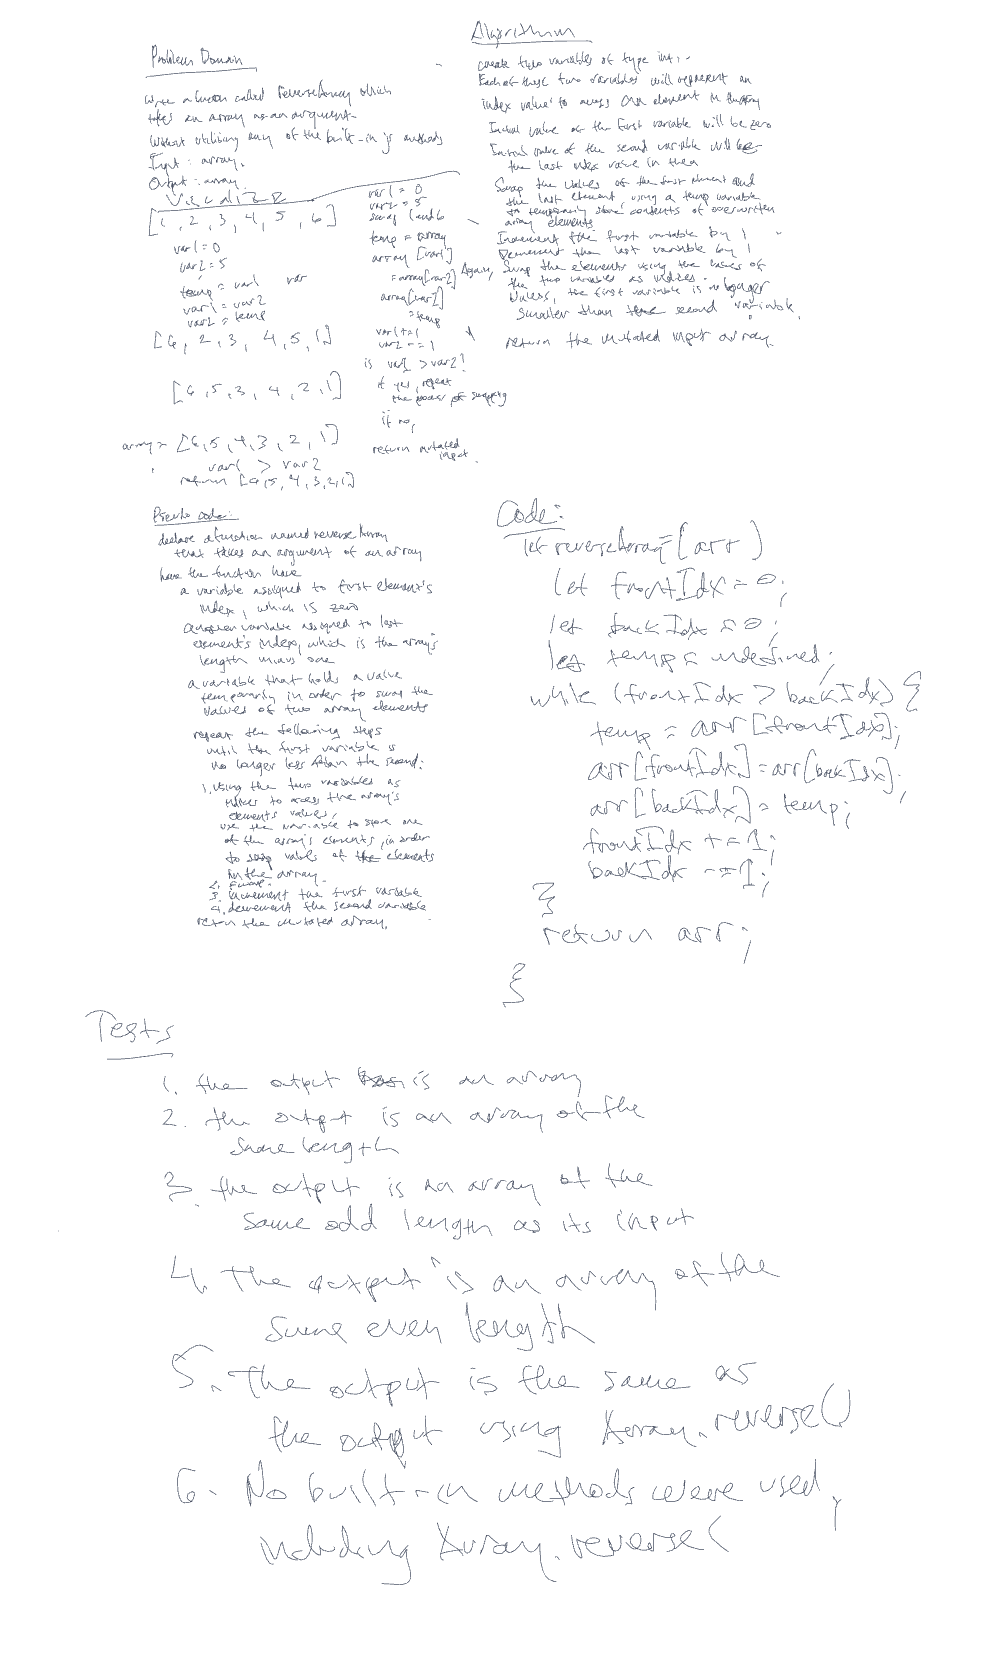 Problem Domain
Write a function called reverseArray which
takes an array as an argument.
Without utilizing any of the built-in js methods
Input: array.
Output: array
Visualize
[1, 2, 3, 4, 5, 6]
var1 = 0
var2 = 5
temp = var1 var
var1 = var2
var2 = temp
[6, 2, 3, 4, 5, 1]
[6, 5, 3, 4, 2, 1]
array = [6, 5, 4, 3, 2, 1]
var1 > var2
return [6, 5, 4, 3, 2, 1]
var1 = 0
var2 = 5
swap 1 and 6
temp = array
array [var1]
= array[var2]
array[var2]
= temp
var1 += 1
var2 -= 1
is var1 > var2?
if yes, repeat
the process of swapping
if no,
return mutated
input.
Algorithm
create two variables of type int.
Each of these two variables will represent an
index value to access an element in the array
Initial value of the first variable will be zero
Initial value of the second variable will be
the last index value in the
Swap the values of the first element and
the last element using a temp variable
to temporarily store contents of overwritten
array elements
Increment the first variable by 1
Decrement the last variable by 1
Again, Swap the elements using the values of
the two variables as indices.
Unless, the first variable is no longer
smaller than the second variable.
return the mutated input array.
Pseudo code:
declare a function named reverseArray
that takes an argument of an array
have the function have
a variable assigned to first element's
index, which is zero
another variable assigned to last
element's index, which is the array's
length minus one
a variable that holds a value
temporarily in order to swap the
values of two array elements
repeat the following steps
until the first variable is
no longer less than the second:
1. using the two variables as
indices to access the array's
elements values,
use the variable to store one
of the array's elements, in order
to swap values of the elements
in the array.
2.
3. increment the first variable
4. decrement the second variable
return the mutated array.
Code:
let reverseArray = (arr)
let frontIdx = 0;
let backIdx = 0;
let temp = undefined;
while (frontIdx > backIdx) {
temp = arr[frontIdx];
arr[frontIdx] = arr[backIdx];
arr[backIdx] = temp;
frontIdx += 1;
backIdx -= 1;
}
return arr;
}
Tests
1. the output is an array
2. the output is an array of the
same length
3. the output is an array of the
same odd length as its input
4. The output is an array of the
same even length
5. The output is the same as
the output using Array.reverse()
6. No built-in methods were used,
including Array.reverse(